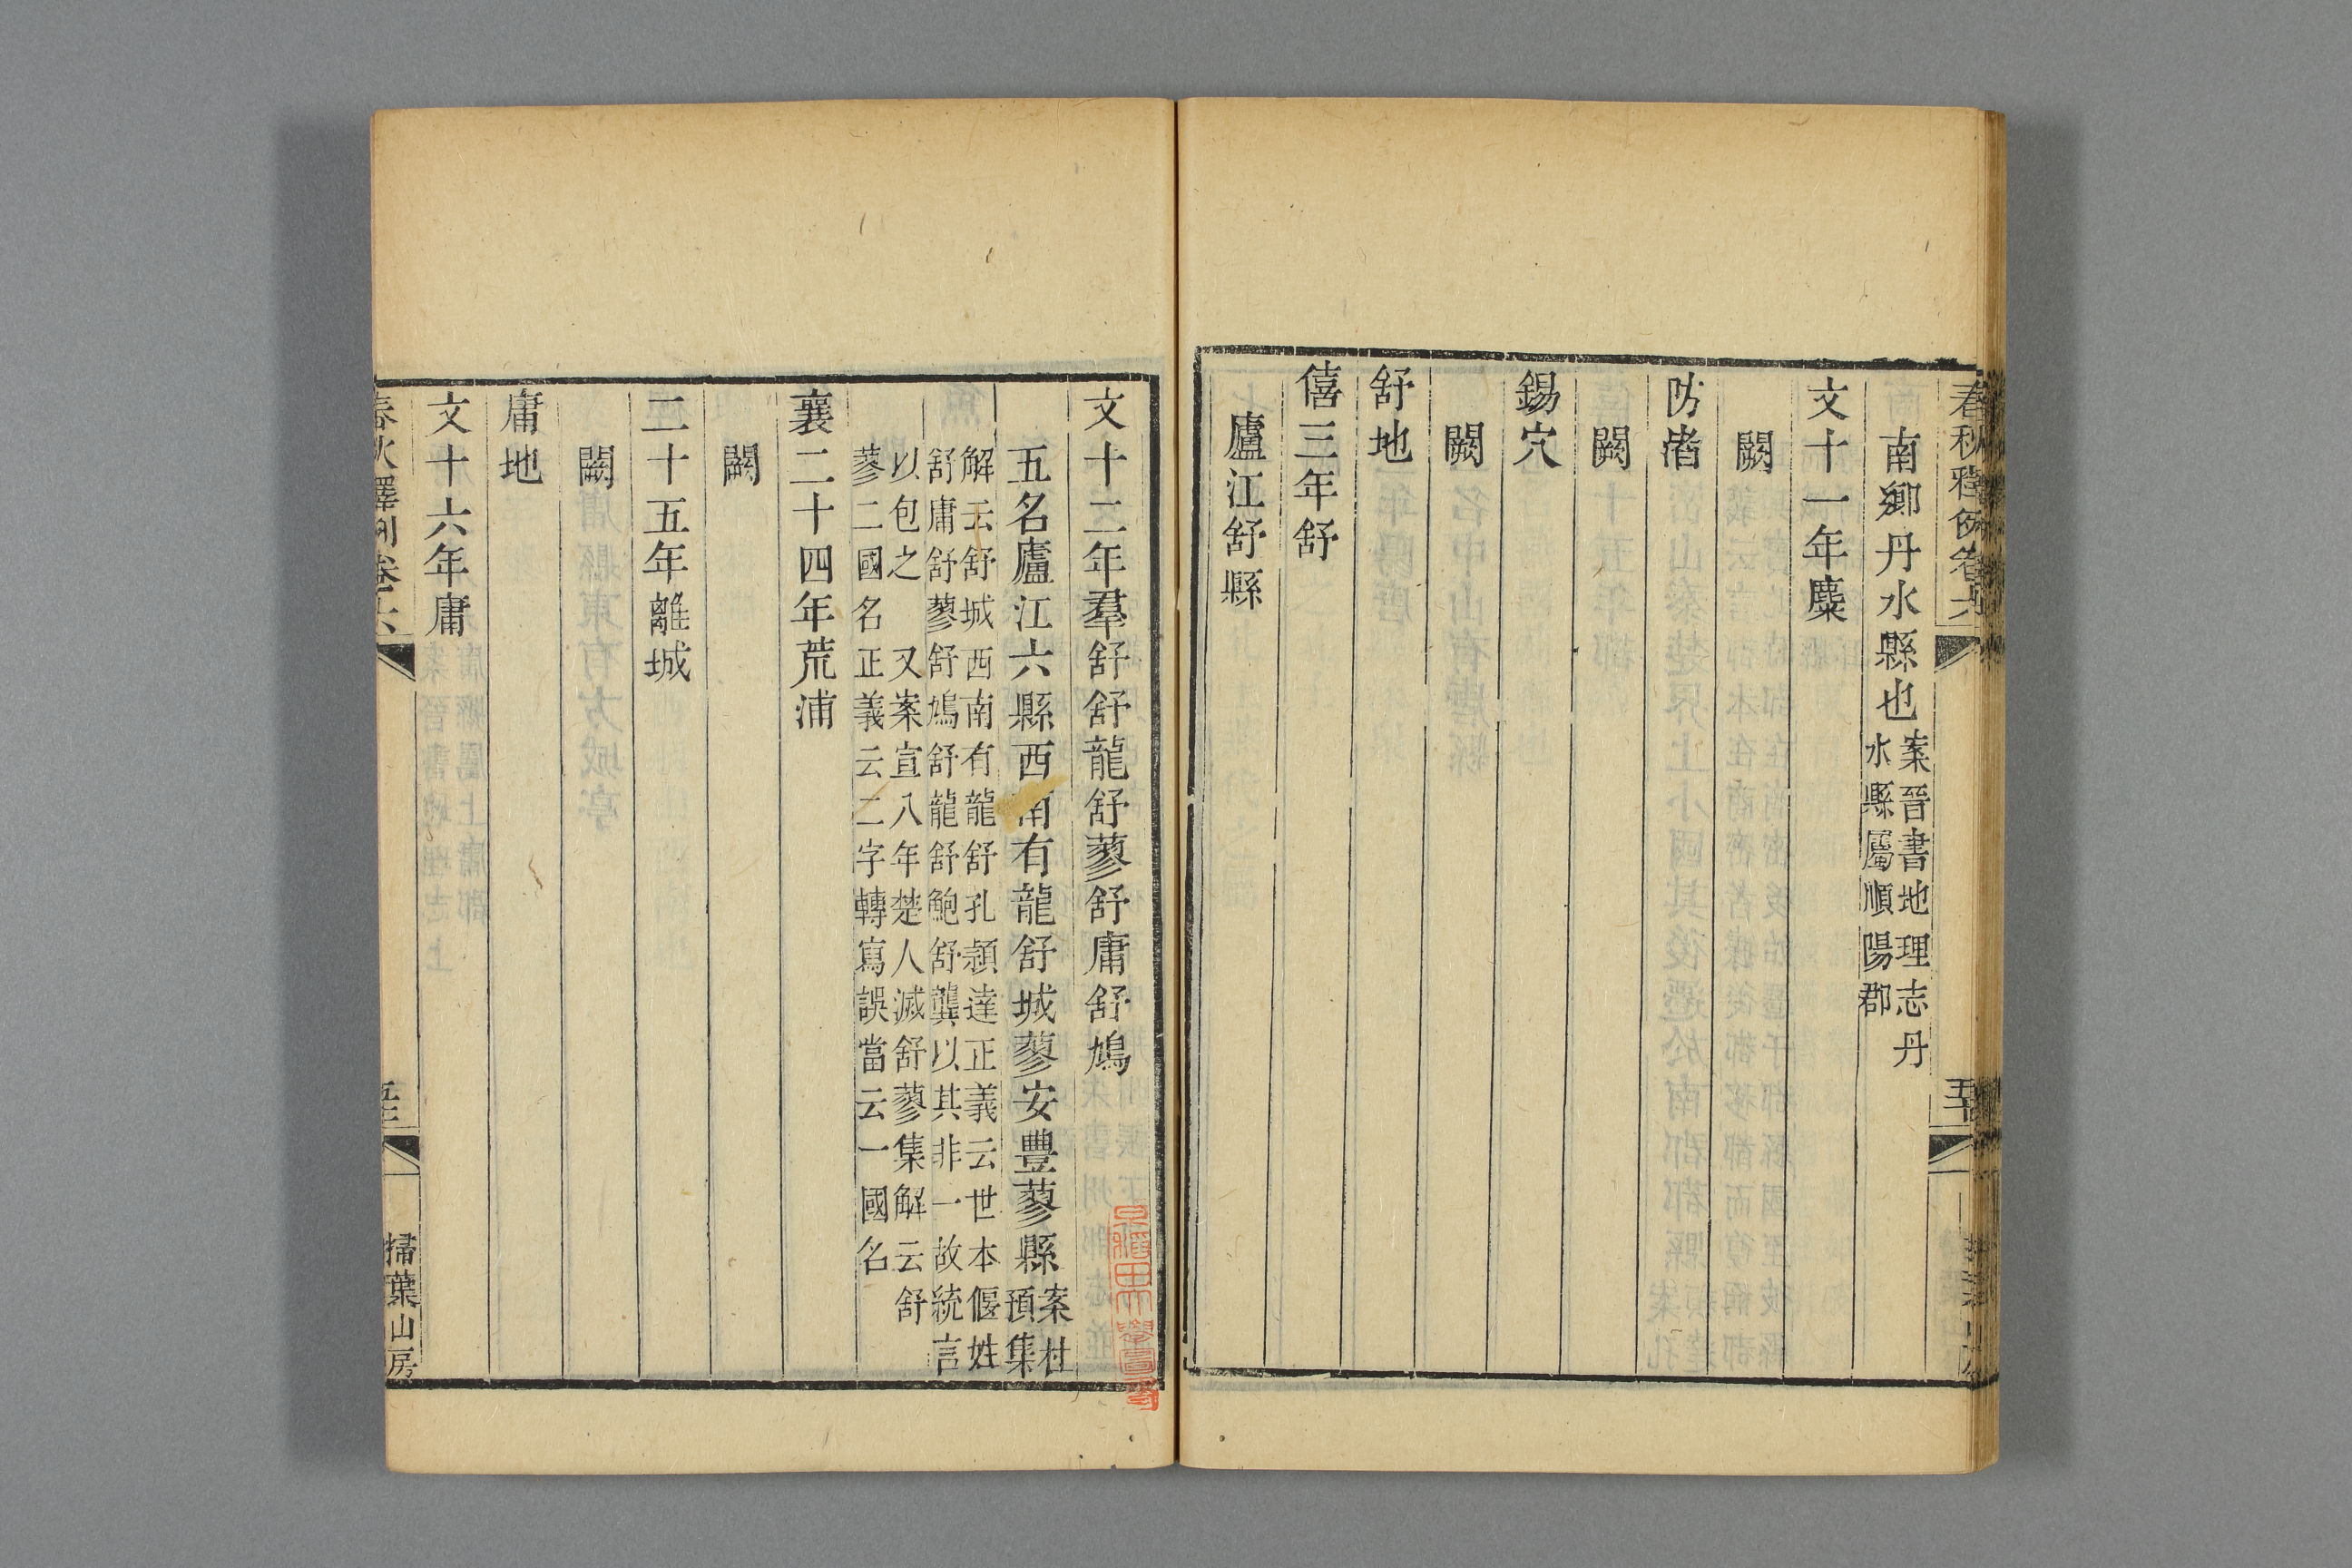 春秋釋例卷六
南鄉丹水縣也案晉書地理志丹
水縣屬順陽郡
文十一年麋
闕
防渚
闕
錫穴
闕
舒地
僖三年舒
廬江舒縣
文十二年羣舒舒龍舒蓼舒庸舒鳩
五名廬江六縣西南有龍舒城蓼安豐蓼縣案杜
預集
解云舒城西南有龍舒孔穎達正義云世本偃姓
舒庸舒蓼舒鳩舒龍舒鮑舒龔以其非一故統言
以包之 又案宣八年楚人滅舒蓼集解云舒
蓼二國名正義云二字轉寫誤當云一國名
襄二十四年荒浦
闕
二十五年離城
闕
庸地
文十六年庸
春秋釋例卷六
掃葉山房